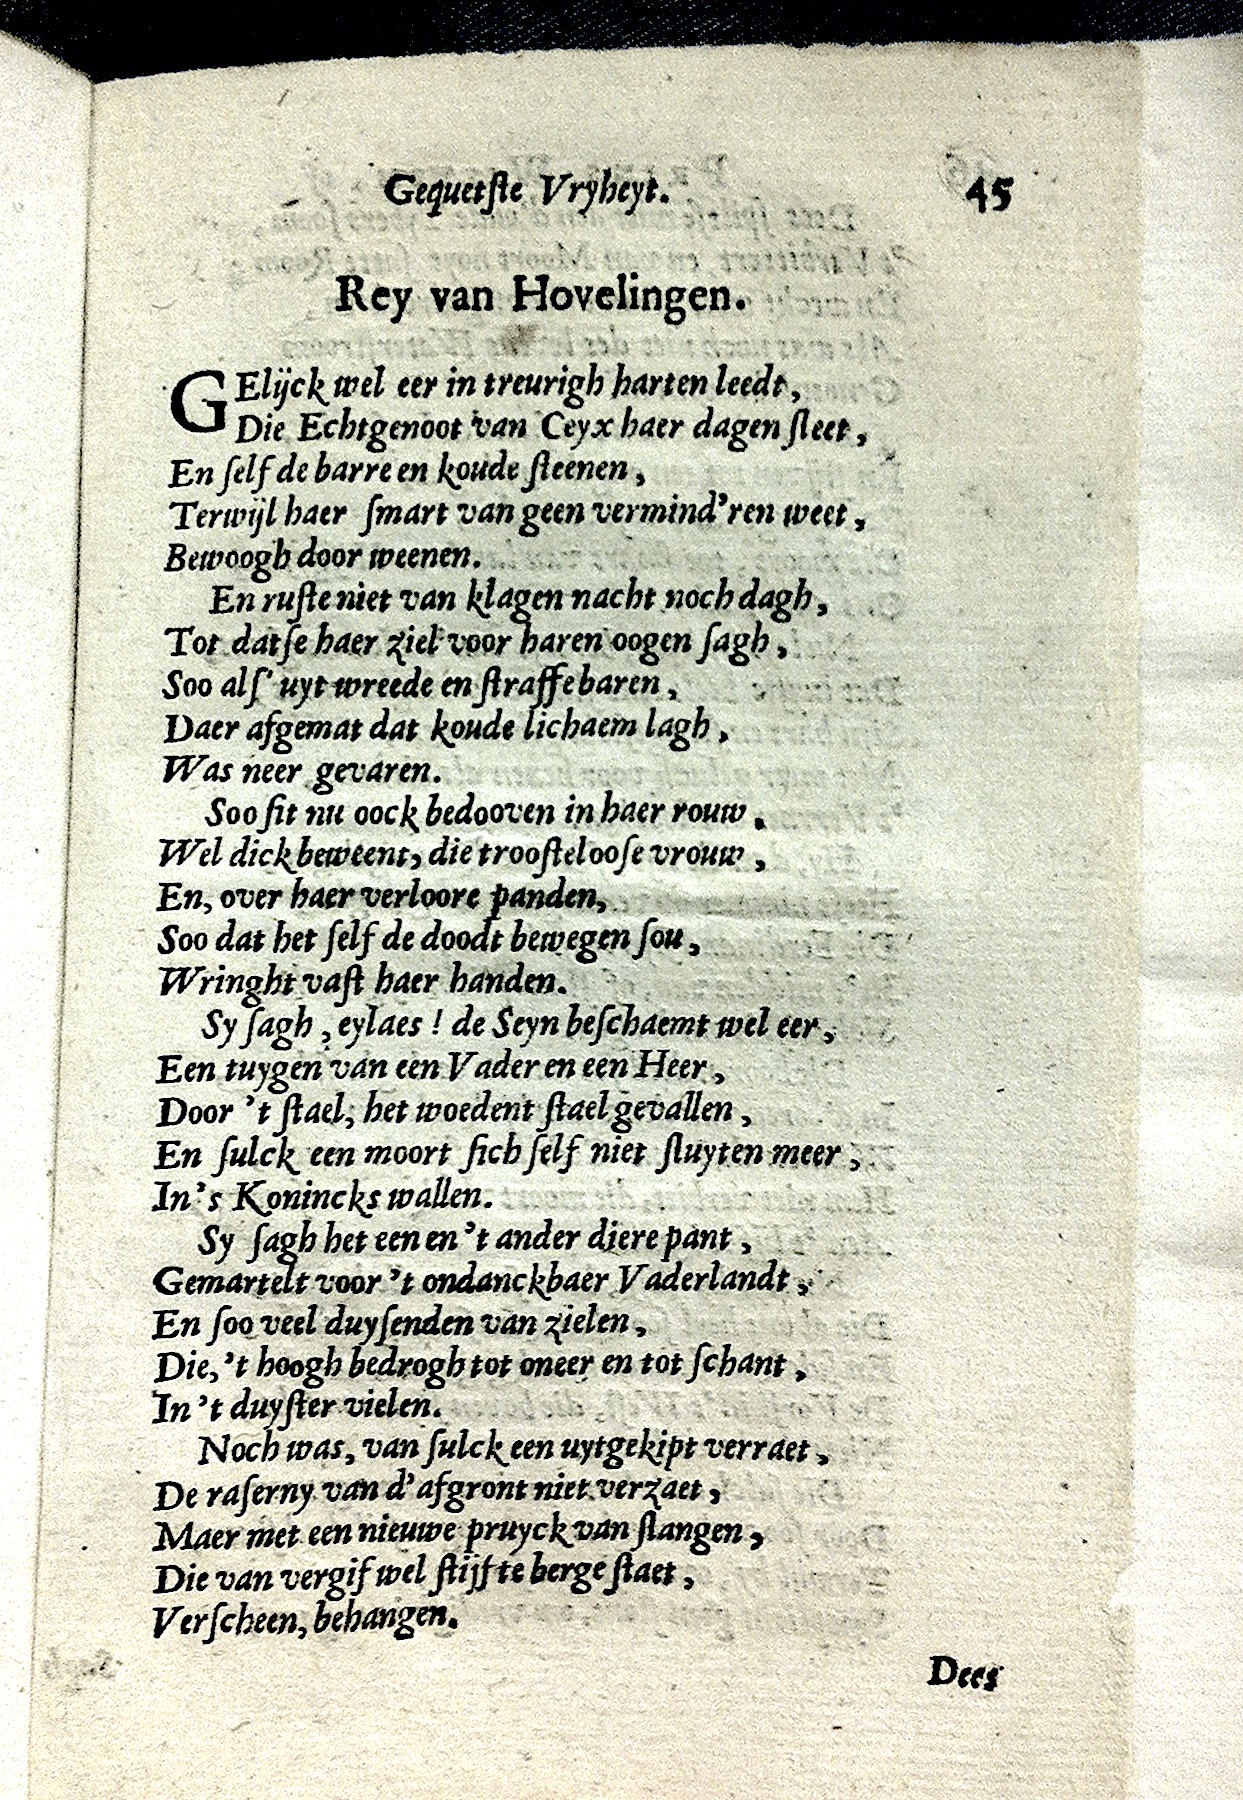 Gequetſte Vryheyt. 45
Rey van Hovelingen.
GElijck wel eer in treurigh harten leedt,
Die Echtgenoot van Ceyx haer dagen ſleet,
En ſelf de barre en koude ſteenen,
Terwijl haer ſmart van geen vermind'ren weet,
Bewoogh door weenen.
En ruſte niet van klagen nacht noch dagh,
Tot datſe haer ziel voor haren oogen ſagh,
Soo alſ' uyt wreede en ſtraffe baren,
Daer afgemat dat koude lichaem lagh,
Was neer gevaren.
Soo ſit nu oock bedooven in haer rouw,
Wel dick beweent, die trooſtelooſe vrouw,
En, over haer verloore panden,
Soo dat het ſelf de doodt bewegen ſou,
Wringht vaſt haer handen.
Sy ſagh, eylaes! de Seyn beſchaemt wel eer,
Een tuygen van een Vader en een Heer,
Door 't ſtael, het woedent ſtael gevallen,
En ſulck een moort ſich ſelf niet ſluyten meer,
In's Konincks wallen.
Sy ſagh het een en 't ander diere pant,
Gemartelt voor 't ondanckbaer Vaderlandt,
En ſoo veel duyſenden van zielen,
Die, 't hoogh bedrogh tot oneer en tot ſchant,
In 't duyſter vielen.
Noch was, van ſulck een uytgekipt verraet,
De raſerny van d'afgront niet verzaet,
Maer met een nieuwe pruyck van ſlangen,
Die van vergif wel ſtijf te berge ſtaet,
Verſcheen, behangen.
Dees